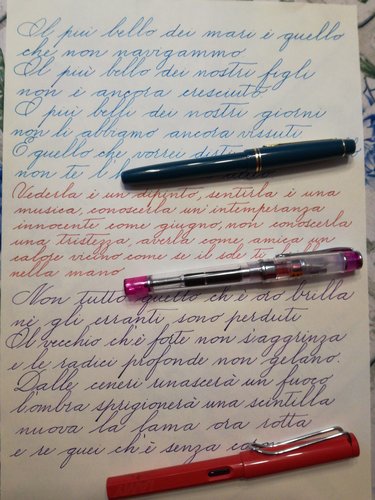 Il piu bello dei mari è quello
che non navigammo
Il piu bello dei nostri figli
non è ancora cresciuto
I piu belli dei nostri giorni
non li abbiamo ancora vissuti
E quello che vorrei dirti
non te l'
Vederla è un dipinto, sentirla è una
musica, conoscerla un'intemperanza
innocente come giugno, non conoscerla
una tristezza, averla come amica un
calore vicino come se il sole te
nella mano
Non tutto quello ch'è oro brilla
nè gli erranti sono perduti
Il vecchio ch'è forte non s'aggrinza
e le radici profonde non gelano.
Dalle ceneri rinascerà un fuoco
l'ombra sprigionerà una scintilla
nuova la lama ora rotta
e re quei ch'è senza